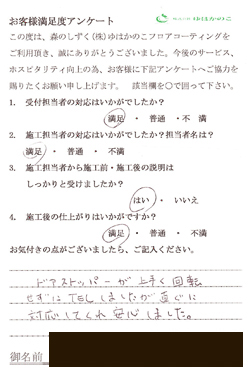 お客様満足度アンケート
この度は、森のしずく(株)ゆはかのこフロアコーティングを
ご利用頂き、誠にありがとうございました。今後のサービス、
ホスピタリティ向上の為、お客様に下記アンケートへご協力を
賜りたくお願い申し上げます。 該当欄を○で囲って下さい。
1. 受付担当者の対応はいかがでしたか?
満足 ・ 普通 ・ 不満
2. 施工担当者の対応はいかがでしたか?担当者名は?
満足 ・ 普通 ・ 不満
3. 施工担当者から施工前・施工後の説明は
しっかりと受けましたか?
はい ・ いいえ
4. 施工後の仕上がりはいかがですか?
満足 ・ 普通 ・ 不満
お気付きの点がございましたら、ご記入ください。
ドアストッパーが上手く回転
せずにTELしましたが直ぐに
対応してくれ安心しました。
御名前